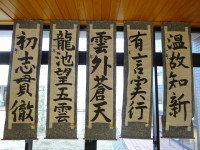 温故知新
有言実行
雲外蒼天
龍池望五雲
初志貫徹